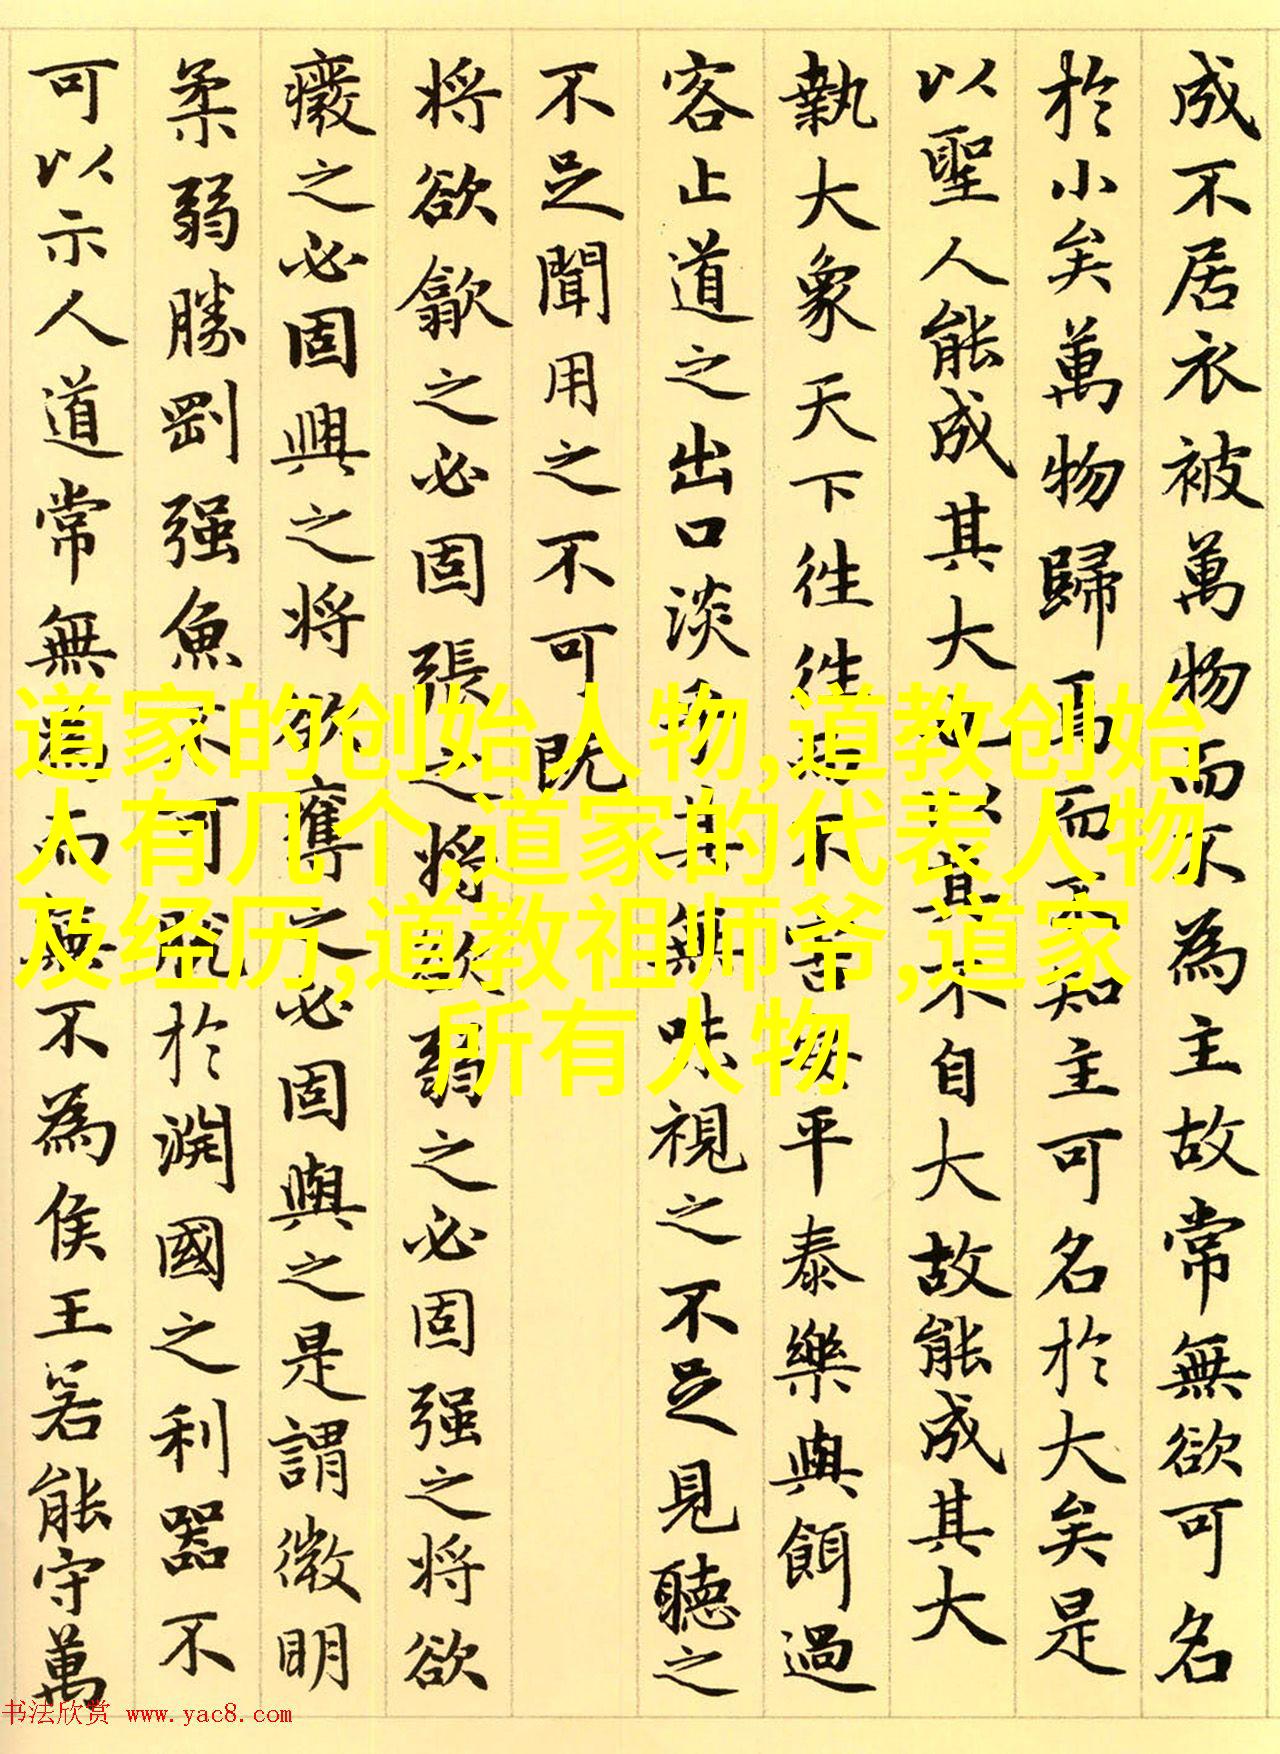 成不居衣被萬物而不為主故常無欲可名
於小矣萬物歸焉而不知主可名於大矣是
以聖人能成其大也以其不自大故能成其大
執大象天下徃徃而不害安平泰樂與餌過
客止道之出口淡乎其無味視之不足見聽之
不足聞用之不可既
将欲歙之必固張之将欲弱之必固强之将欲
癈之必固興之将欲奪之必固與之是謂微明
柔弱勝剛强魚不可脫於淵國之利器不
可以示人道常無為而無不為侯王若能守萬
道家的创始人物,道教创始
人有几个,道家的代表人物
及经历,道教祖师爷,道家
所有人物
书法欣赏 www.yac8.com